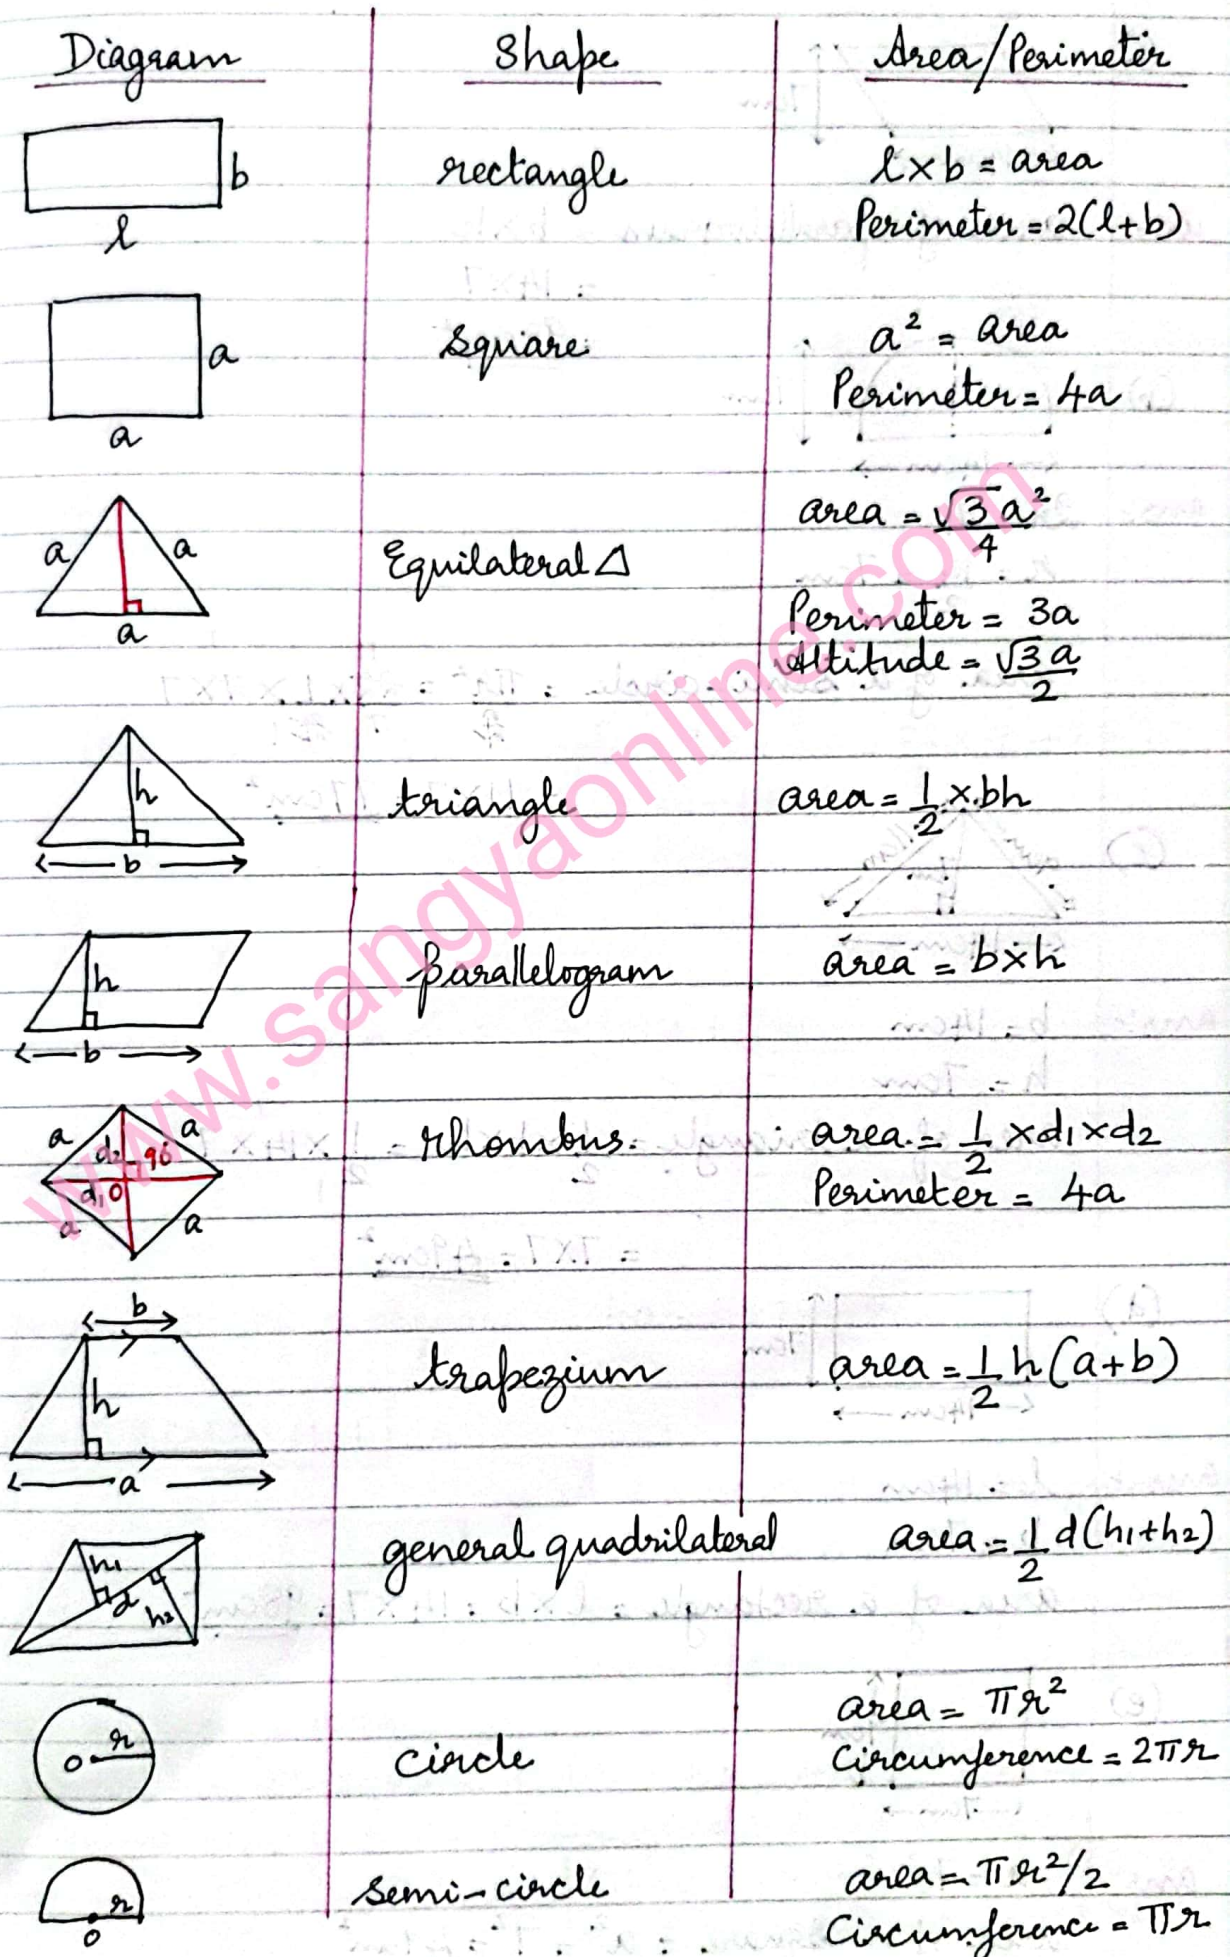 Diagram Shape Area/Perimeter
b
l
rectangle
l×b = area
Perimeter = 2(l+b)
a
a
square
a² = area
Perimeter = 4a
a a
a
Equilateral △
area = √3a²/4
Perimeter = 3a
Altitude = √3a/2
h
b
triangle
area = 1/2 × bh
h
b
parallelogram
area = b×h
a a
d2 90°
d1 O
a a
rhombus
area = 1/2 ×d1×d2
Perimeter = 4a
b
h
a
trapezium
area = 1/2 h(a+b)
h1
d
h2
general quadrilateral
area = 1/2 d(h1+h2)
r
O
circle
area = πr²
Circumference = 2πr
r
O
semi-circle
area = πr²/2
Circumference = πr
www.sangyaonline.com